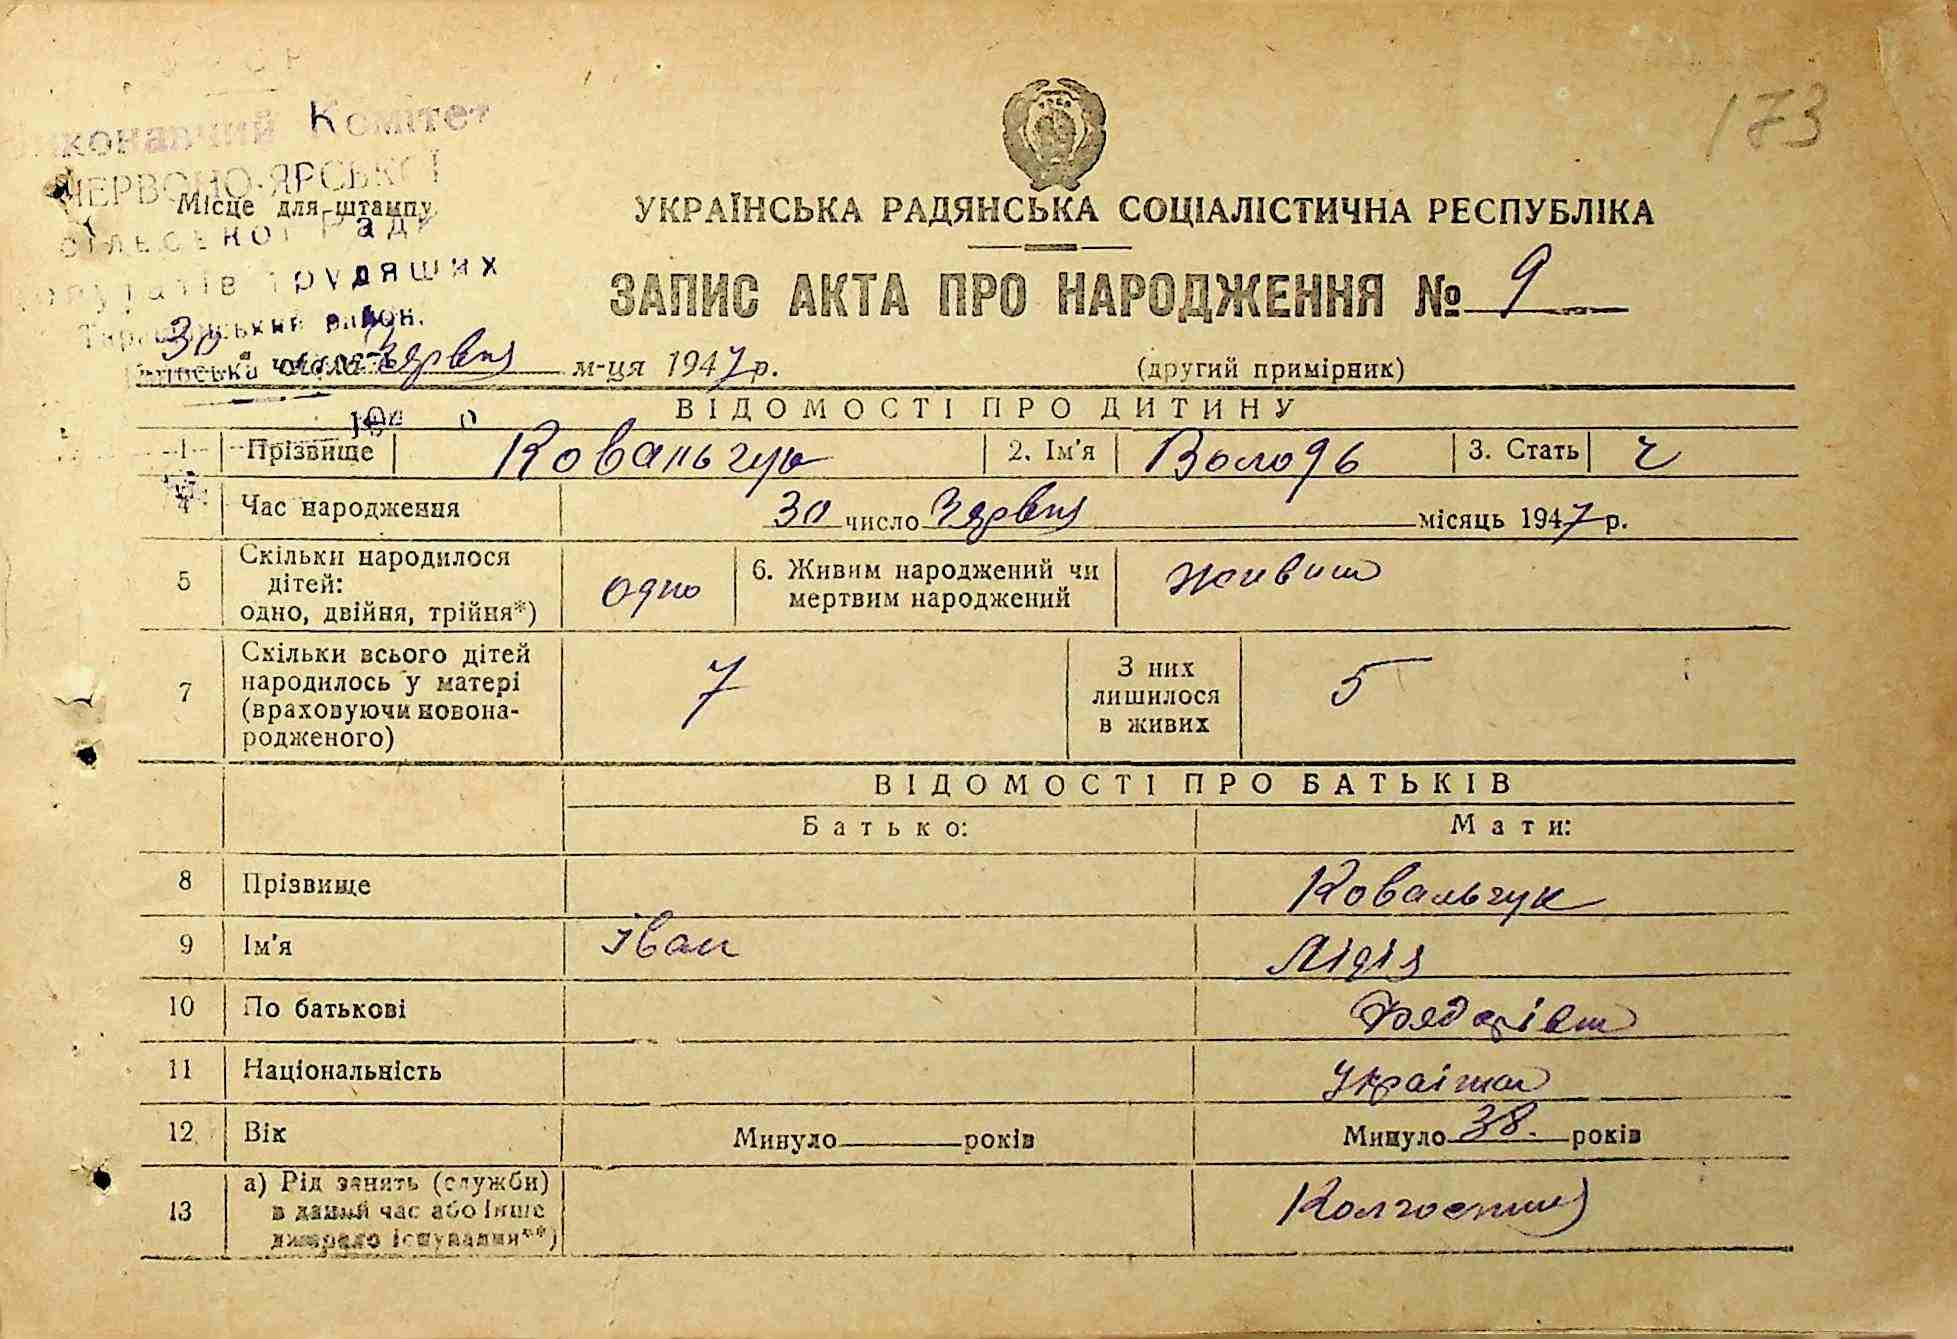 173
Виконавчий Комітет
ЧЕРВОНО-ЯРСЬКОЇ
Місце для штампу
сільської Ради
депутатів трудящих
район.
УКРАЇНСЬКА РАДЯНСЬКА СОЦІАЛІСТИЧНА РЕСПУБЛІКА
ЗАПИС АКТА ПРО НАРОДЖЕННЯ № 9
30 Червня м-ця 1947 р. (другий примірник)
ВІДОМОСТІ ПРО ДИТИНУ
1 Прізвище Ковальчук 2. Ім'я Володь 3. Стать ч
4 Час народження 30 число Червня місяць 1947 р.
5 Скільки народилося дітей: одно, двійня, трійня*) одно 6. Живим народжений чи мертвим народжений живим
7 Скільки всього дітей народилось у матері (враховуючи новонародженого) 7 З них лишилося в живих 5
ВІДОМОСТІ ПРО БАТЬКІВ
Батько: Мати:
8 Прізвище Ковальчук
9 Ім'я Іван Лідія
10 По батькові
11 Національність Українка
12 Вік Минуло років Минуло 38. років
13 а) Рід занять (служби) в даний час або інше джерело існування**)